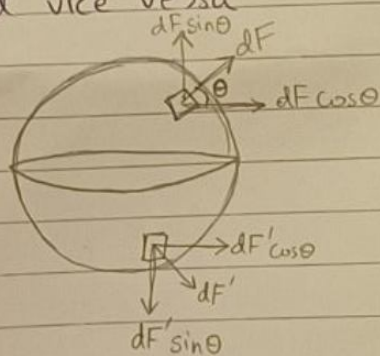 vice versa
dF sinθ
dF
θ
dF cosθ
dF' cosθ
dF'
dF' sinθ